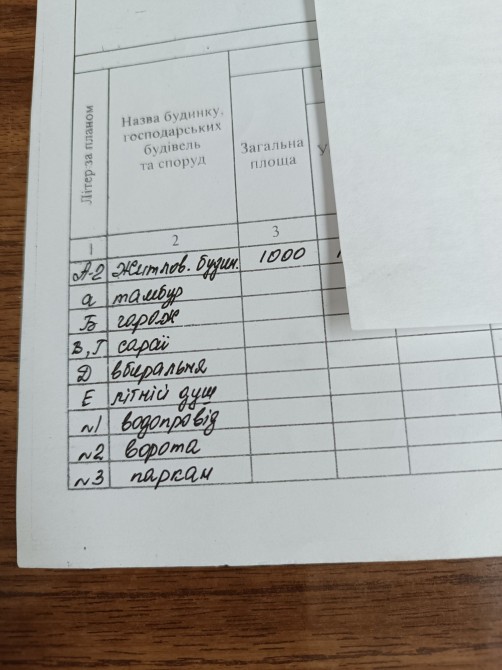 Літер за планом
Назва будинку,
господарських
будівель
та споруд
Загальна
площа
У
1 2 3
А-2 Житлов. будин. 1000
а тамбур
Б гараж
В, Г сарай
Д вбиральня
Е літній душ
№1 водопровід
№2 ворота
№3 паркан